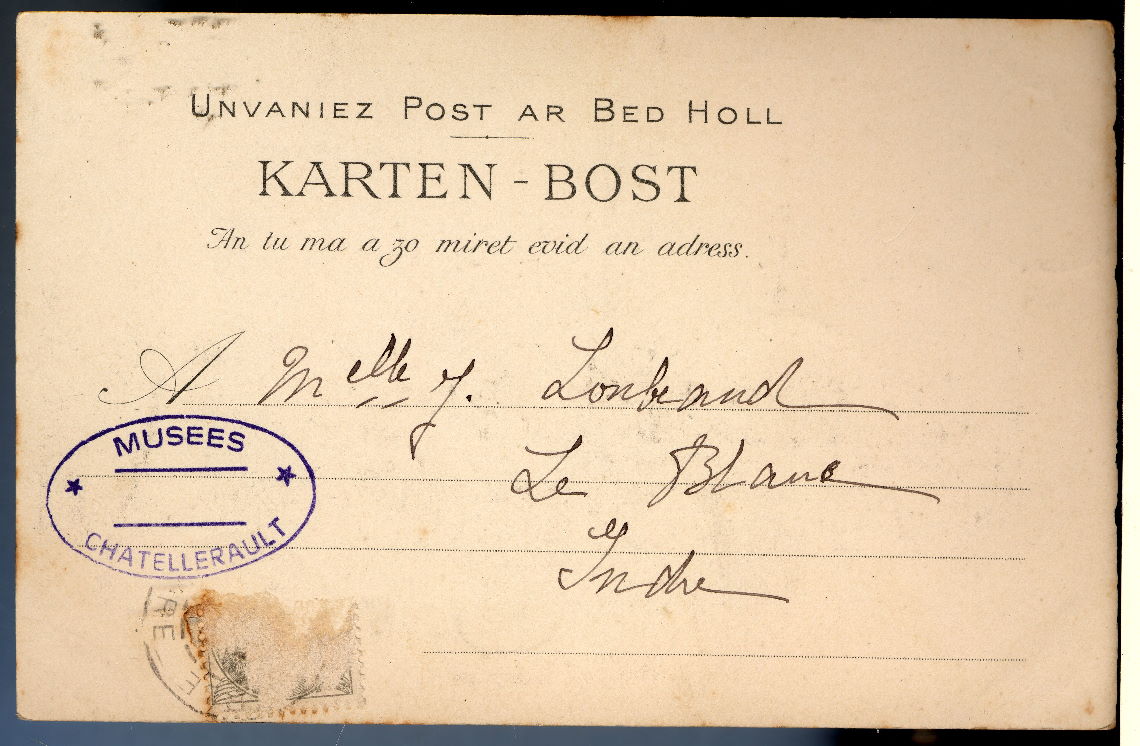 UNVANIEZ POST AR BED HOLL
KARTEN-BOST
An tu ma a zo miret evid an adress.
A Melle J. Loubeaud
Le Blanc
Indre
MUSEES
CHATELLERAULT
RE